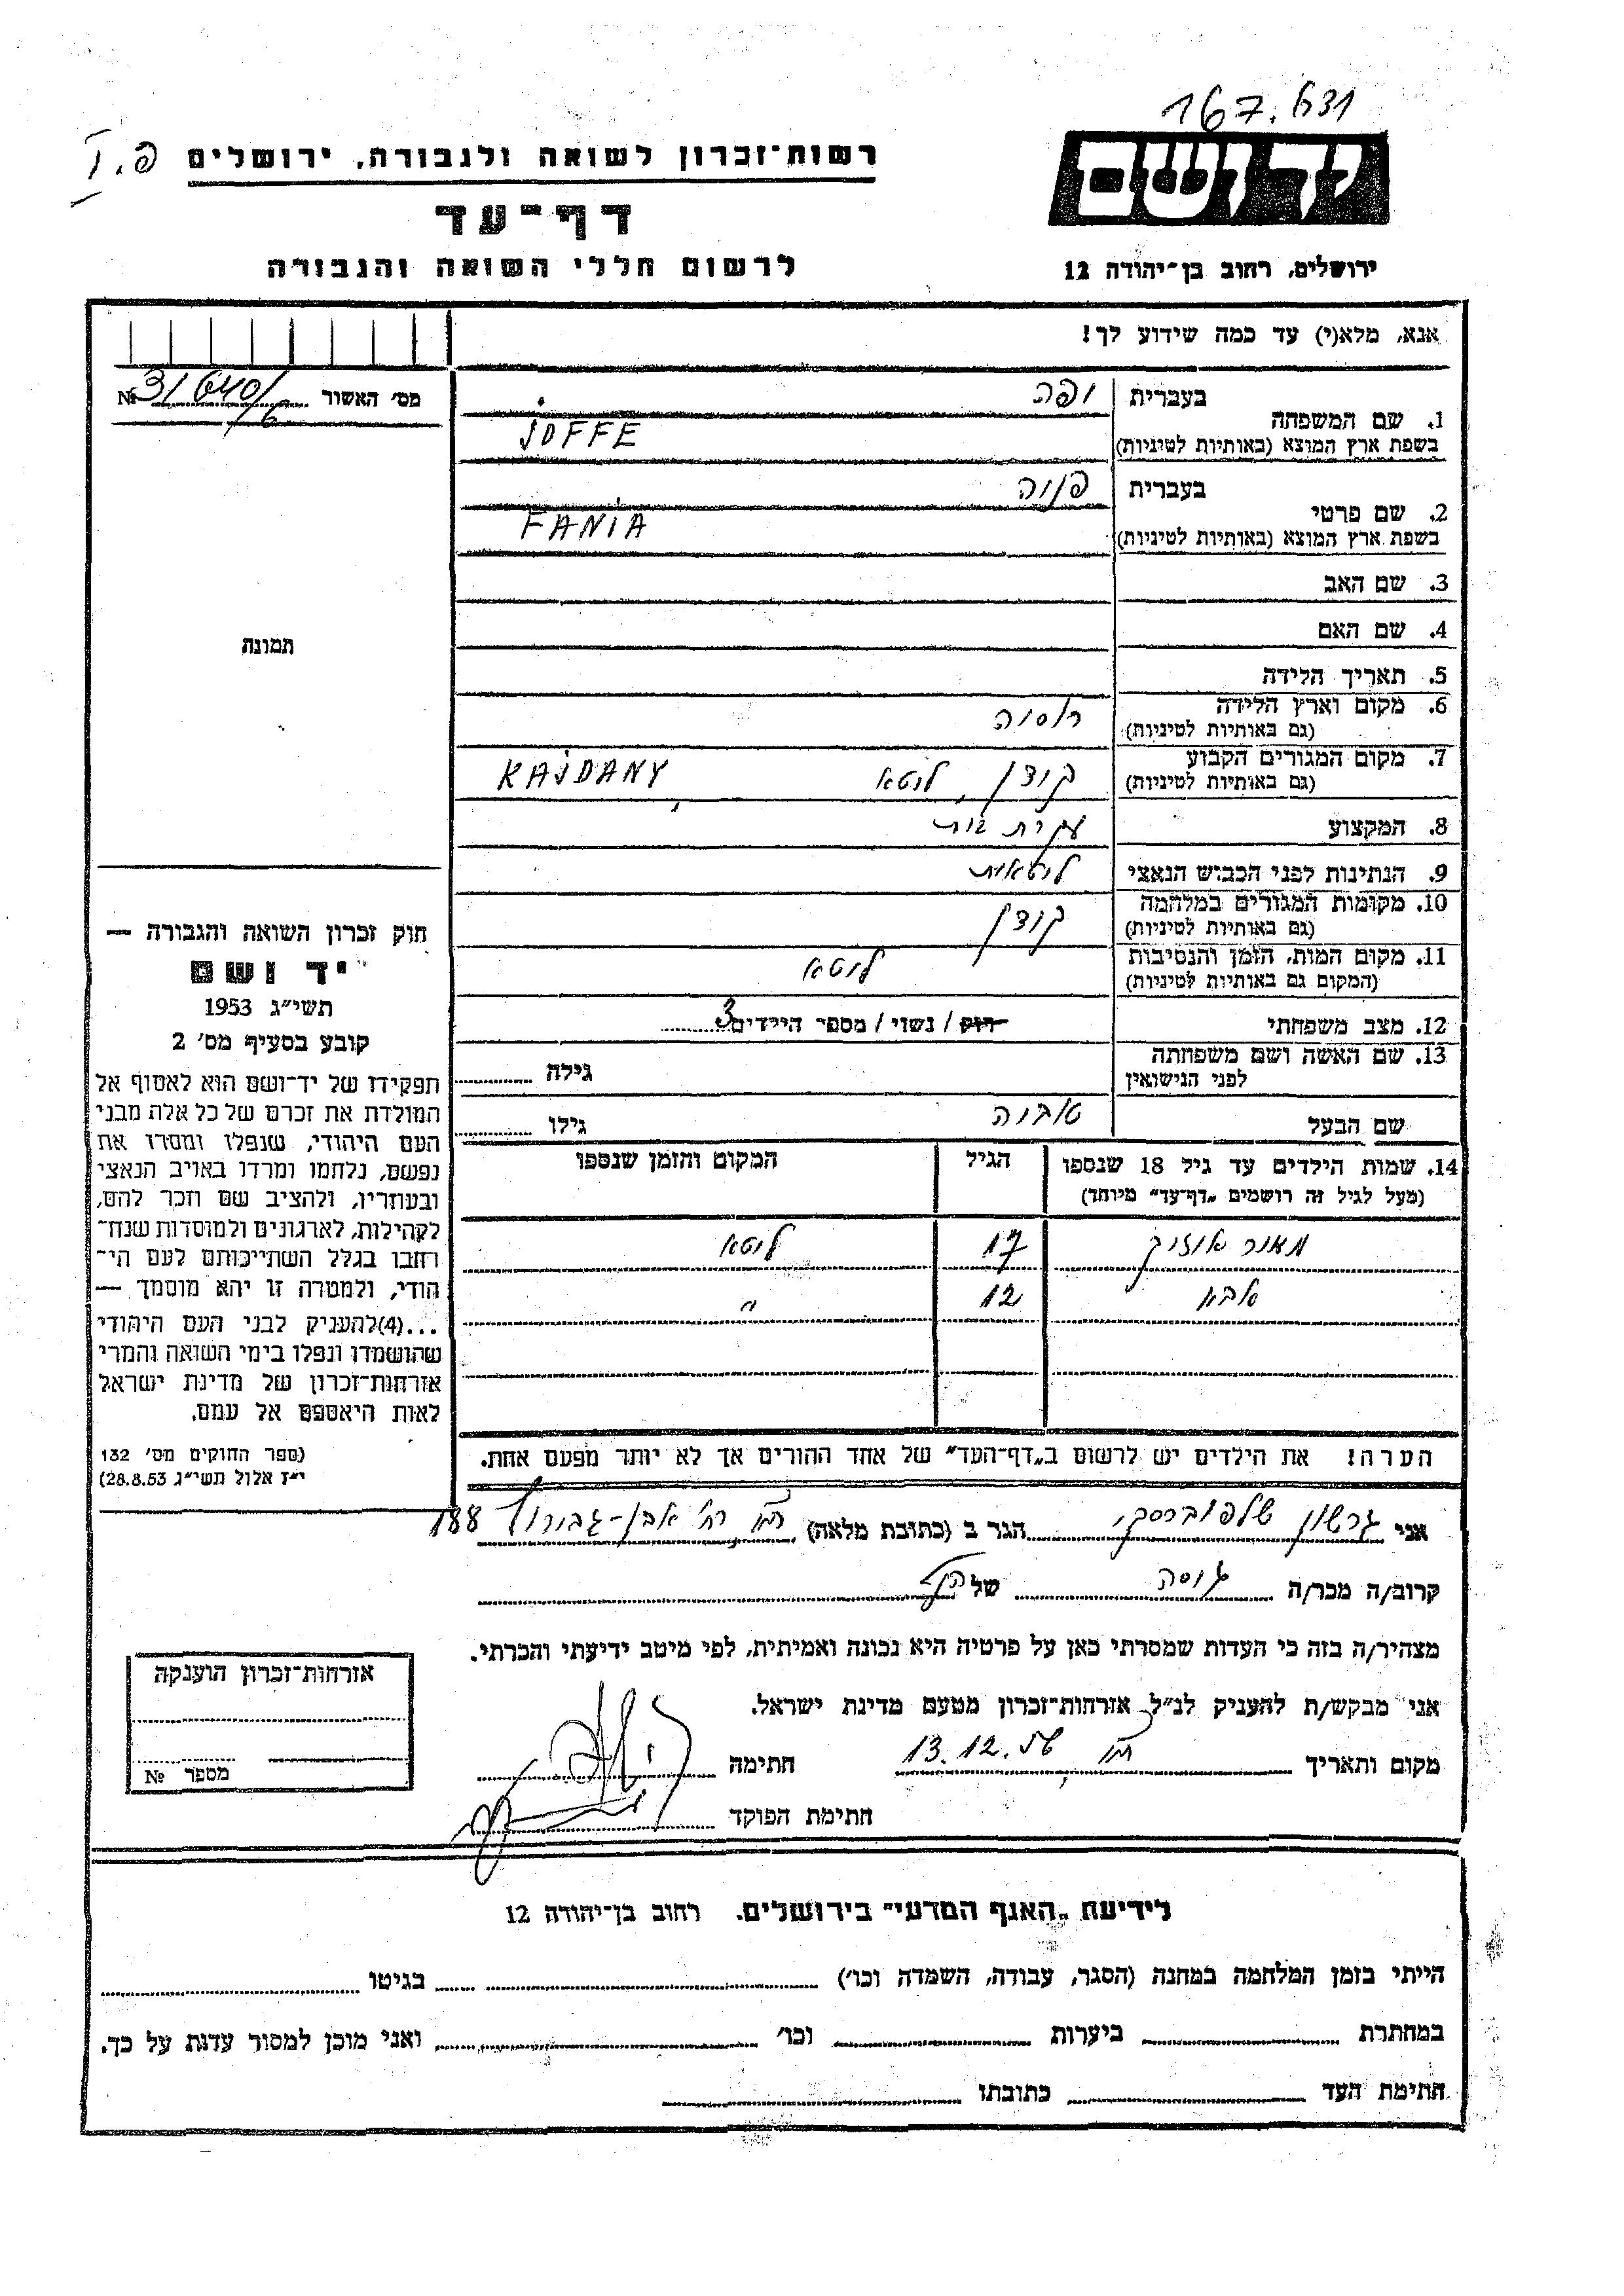 167.631
רשות־זכרון לשואה ולגבורה, ירושלים
יד ושם
דף־עד
לרשום חללי השואה והגבורה
ירושלים, רחוב בן־יהודה 12
אנא, מלא(י) עד כמה שידוע לך!
מס' האשור № 31640/6
1. שם המשפחה בעברית יופה
בשפת ארץ המוצא (באותיות לטיניות) JOFFE
2. שם פרטי בעברית פניה
בשפת ארץ המוצא (באותיות לטיניות) FANIA
3. שם האב
4. שם האם
תמונה
5. תאריך הלידה
6. מקום וארץ הלידה רוסיה
(גם באותיות לטיניות)
7. מקום המגורים הקבוע קידן, ליטא KAJDANY
(גם באותיות לטיניות)
8. המקצוע עקרת בית
9. הנתינות לפני הכבוש הנאצי ליטאית
10. מקומות המגורים במלחמה קידן
(גם באותיות לטיניות)
11. מקום המות, הזמן והנסיבות ליטא
(המקום גם באותיות לטיניות)
12. מצב משפחתי רווק / נשוי / מספר הילדים 3
13. שם האשה ושם משפחתה גילה
לפני הנישואין
שם הבעל טוביה גילו
14. שמות הילדים עד גיל 18 שנספו הגיל המקום והזמן שנספו
(מעל לגיל זה רושמים „דף־עד" מיוחד)
17 ליטא
אבא 12 "
הערה! את הילדים יש לרשום ב„דף־העד" של אחד ההורים אך לא יותר מפעם אחת.
חוק זכרון השואה והגבורה —
יד ושם
תשי״ג 1953
קובע בסעיף מס' 2
תפקידו של יד־ושם הוא לאסוף אל
המולדת את זכרם של כל אלה מבני
העם היהודי, שנפלו ומסרו את
נפשם, נלחמו ומרדו באויב הנאצי
ובעוזריו, ולהציב שם וזכר להם,
לקהילות, לארגונים ולמוסדות שנח־
רחבו בגלל השתייכותם לעם הי־
הודי, ולמטרה זו יהא מוסמך —
...(4)להעניק לבני העם היהודי
שהושמדו ונפלו בימי השואה והמרי
אזרחות־זכרון של מדינת ישראל
לאות היאספם אל עמם.
(ספר החוקים מס' 132
י״ז אלול תשי״ג 28.8.53)
אני גרשון שלפוברסקי הגר ב (כתובת מלאה) ת״א רח' אבן־גבירול 188
קרוב/ה מכר/ה גיסה של הנ״ל
מצהיר/ה בזה כי העדות שמסרתי כאן על פרטיה היא נכונה ואמיתית, לפי מיטב ידיעתי והכרתי.
אני מבקש/ת להעניק לנ״ל אזרחות־זכרון מטעם מדינת ישראל.
מקום ותאריך ת״א 13.12.56 חתימה
חתימת הפוקד
אזרחות־זכרון הוענקה
מספר №
לידיעת „האגף המדעי" בירושלים. רחוב בן־יהודה 12
הייתי בזמן המלחמה במחנה (הסגר, עבודה, השמדה וכו') בגיטו
במחתרת ביערות וכו' ואני מוכן למסור עדות על כך.
חתימת העד כתובתו